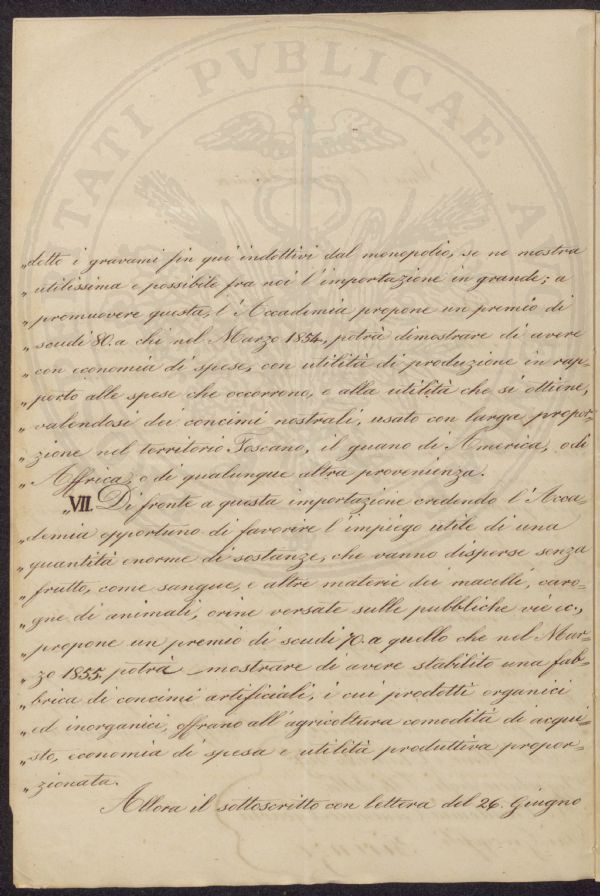 „dotte i gravami fin qui indottivi dal monopolio, se ne mostra
„ utilissima e possibile fra noi l'importazione in grande; a
„ promuovere questa, l'Accademia propone un premio di
„ scudi 80. a chi nel Marzo 1854, potrà dimostrare di avere
„ con economia di spese, con utilità di produzione in rap-
„ porto alle spese che occorrono, e alla utilità che si ottiene,
„ valendosi dei concimi nostrali, usato con larga propor-
„ zione nel territorio Toscano, il guano di America, o di
„ Affrica, o di qualunque altra provenienza.
„ VII. Di fronte a questa importazione credendo l'Acca-
„ demia opportuno di favorire l'impiego utile di una
„ quantità enorme di sostanze, che vanno disperse senza
„ frutto, come sangue, e altre materie dei macelli, caro-
„ gne di animali, orine versate sulle pubbliche vie ec.,
„ propone un premio di scudi 70. a quello che nel Mar-
„ zo 1855. potrà mostrare di avere stabilito una fab-
„ brica di concimi artificiali, i cui prodotti organici
„ ed inorganici, offrano all'agricoltura comodità di acqui-
„ sto, economia di spesa e utilità produttiva propor-
„ zionata.
Allora il sottoscritto con lettera del 26. Giugno